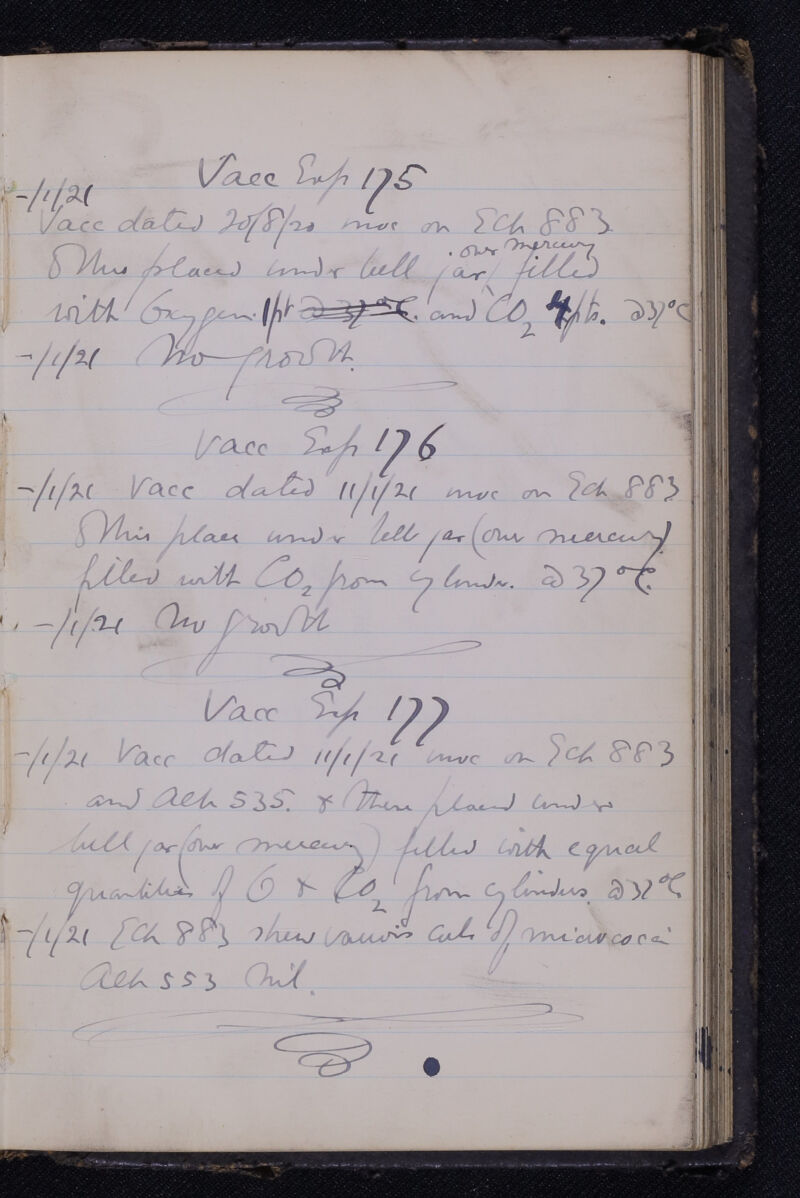 Vacc Exp 175
-/1/21
Vacc dated 20/8/20 inoc on Ech 883
& this placed under bell jar (over mercury) filled
with Oxygen 1pt @ 37°C. and CO2 4pts. @37°C
-/1/21 No growth.
Vacc Exp 176
-/1/21 Vacc dated 11/1/21 inoc on Ech 883
& this place under bell jar (over mercury)
filled with CO2 from cylinder. @ 37°C.
-/1/21 No growth
Vacc Exp 177
-/1/21 Vacc dated 11/1/21 inoc on Ech 883
and Ach 535. & these placed under
bell jar (over mercury) filled with equal
quantities of O & CO2 from cylinders. @37°C
-/1/21 Ech 883 shew various cols of micrococci
Ach 553 Nil.